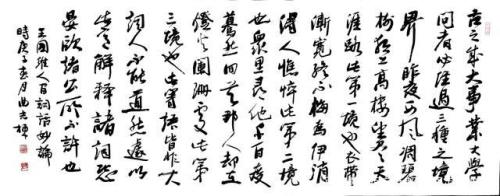 古之成大事業大學
問者必經過三種之境
界昨夜西風凋碧
樹獨上高樓望盡天
涯路此第一境也衣帶
漸寬終不悔為伊消
得人憔悴此第二境
也眾里尋他千百度
驀然回首那人却在
燈火闌珊處此第
三境也此等語皆非大
詞人不能道然遽以
此意解釋諸詞恐
晏歐諸公所不許也
王國維人間詞話妙論
時庚子春月曲